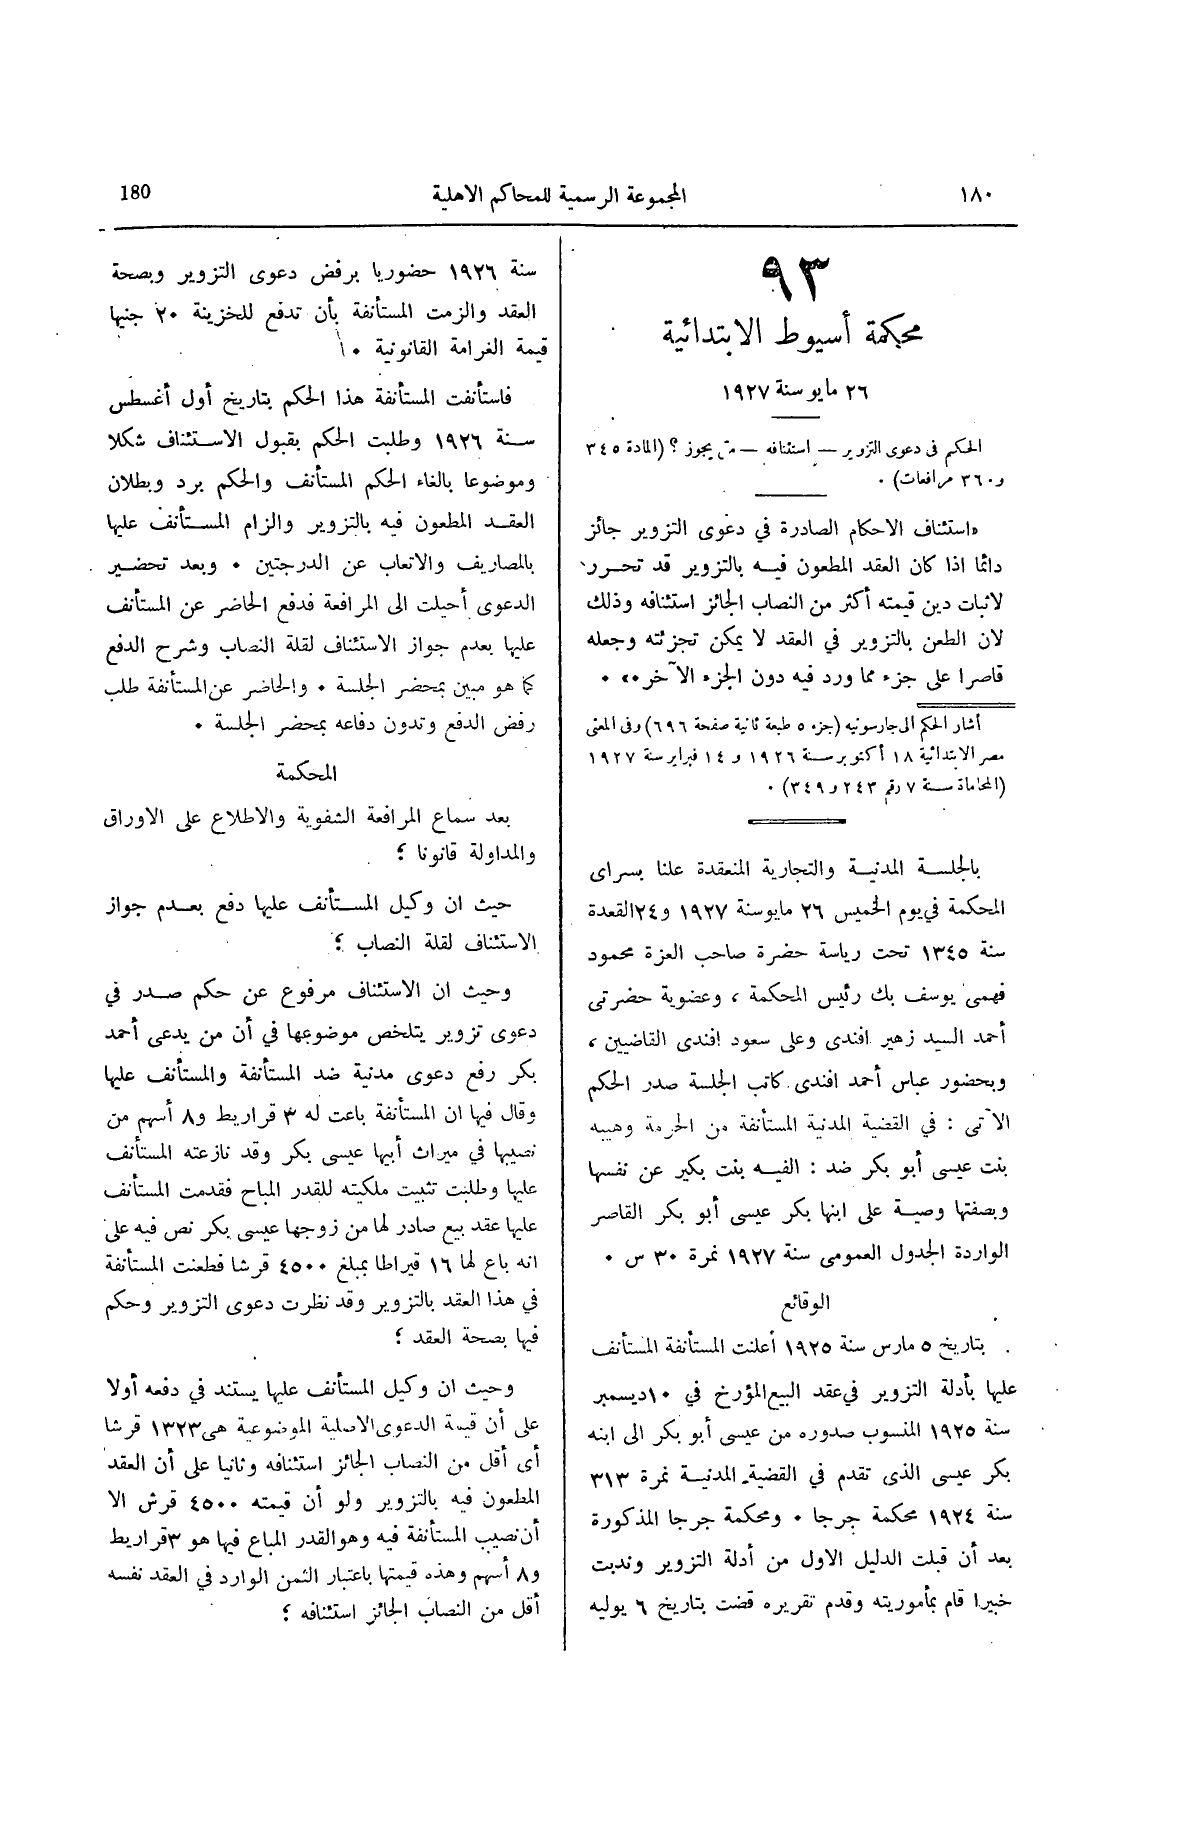 ١٨٠
المجموعة الرسمية للمحاكم الاهلية
180
٩٣
محكمة أسيوط الابتدائية
٢٦ مايو سنة ١٩٢٧
الحكم فى دعوى التزوير — استئنافه — متى يجوز ؟ (المادة ٣٤٥
و ٣٦٠ مرافعات) ٠
«استئناف الاحكام الصادرة في دعوى التزوير جائز
دائما اذا كان العقد المطعون فيه بالتزوير قد تحرر
لاثبات دين قيمته أكثر من النصاب الجائز استئنافه وذلك
لان الطعن بالتزوير في العقد لا يمكن تجزئته وجعله
قاصرا على جزء مما ورد فيه دون الجزء الآخر» ٠
أشار الحكم الى جارسونيه (جزء ٥ طبعة ثانية صفحة ٦٩٦) وفى المعنى
مصر الابتدائية ١٨ أكتوبر سنة ١٩٢٦ و ١٤ فبراير سنة ١٩٢٧
(المحاماة سنة ٧ رقم ٢٤٣ و ٣٤٩) ٠
بالجلسة المدنية والتجارية المنعقدة علنا بسراى
المحكمة في يوم الخميس ٢٦ مايو سنة ١٩٢٧ و٢٤ القعدة
سنة ١٣٤٥ تحت رياسة حضرة صاحب العزة محمود
فهمى يوسف بك رئيس المحكمة ، وعضوية حضرتى
أحمد السيد زهير افندى وعلى سعود افندى القاضيين ،
وبحضور عباس أحمد افندى كاتب الجلسة صدر الحكم
الآتى : في القضية المدنية المستأنفة من الحرمة وهيبه
بنت عيسى أبو بكر ضد : الفيه بنت بكير عن نفسها
وبصفتها وصية على ابنها بكر عيسى أبو بكر القاصر
الواردة الجدول العمومى سنة ١٩٢٧ نمرة ٣٠ س ٠
الوقائع
بتاريخ ٥ مارس سنة ١٩٢٥ أعلنت المستأنفة المستأنف
عليها بأدلة التزوير في عقد البيع المؤرخ في ١٠ ديسمبر
سنة ١٩٢٥ المنسوب صدوره من عيسى أبو بكر الى ابنه
بكر عيسى الذى تقدم في القضية المدنية نمرة ٣١٣
سنة ١٩٢٤ محكمة جرجا ٠ ومحكمة جرجا المذكورة
بعد أن قبلت الدليل الاول من أدلة التزوير وندبت
خبيرا قام بمأموريته وقدم تقريره قضت بتاريخ ٦ يوليه
سنة ١٩٢٦ حضوريا برفض دعوى التزوير وبصحة
العقد والزمت المستأنفة بأن تدفع للخزينة ٢٠ جنيها
قيمة الغرامة القانونية ٠
فاستأنفت المستأنفة هذا الحكم بتاريخ أول أغسطس
سنة ١٩٢٦ وطلبت الحكم بقبول الاستئناف شكلا
وموضوعا بالغاء الحكم المستأنف والحكم برد وبطلان
العقد المطعون فيه بالتزوير والزام المستأنف عليها
بالمصاريف والاتعاب عن الدرجتين ٠ وبعد تحضير
الدعوى أحيلت الى المرافعة فدفع الحاضر عن المستأنف
عليها بعدم جواز الاستئناف لقلة النصاب وشرح الدفع
كما هو مبين بمحضر الجلسة ٠ والحاضر عن المستأنفة طلب
رفض الدفع وتدون دفاعه بمحضر الجلسة ٠
المحكمة
بعد سماع المرافعة الشفوية والاطلاع على الاوراق
والمداولة قانونا ؛
حيث ان وكيل المستأنف عليها دفع بعدم جواز
الاستئناف لقلة النصاب ؛
وحيث ان الاستئناف مرفوع عن حكم صدر في
دعوى تزوير يتلخص موضوعها في أن من يدعى أحمد
بكر رفع دعوى مدنية ضد المستأنفة والمستأنف عليها
وقال فيها ان المستأنفة باعت له ٣ قراريط و٨ أسهم من
نصيبها في ميراث أبيها عيسى بكر وقد نازعته المستأنف
عليها وطلبت تثبيت ملكيته للقدر المباع فقدمت المستأنف
عليها عقد بيع صادر لها من زوجها عيسى بكر نص فيه على
انه باع لها ١٦ قيراطا بمبلغ ٤٥٠٠ قرشا فطعنت المستأنفة
في هذا العقد بالتزوير وقد نظرت دعوى التزوير وحكم
فيها بصحة العقد ؛
وحيث ان وكيل المستأنف عليها يستند في دفعه أولا
على أن قيمة الدعوى الاصلية الموضوعية هى ١٣٢٣ قرشا
أى أقل من النصاب الجائز استئنافه وثانيا على أن العقد
المطعون فيه بالتزوير ولو أن قيمته ٤٥٠٠ قرش الا
أن نصيب المستأنفة فيه وهو القدر المباع فيها هو ٣ قراريط
و٨ أسهم وهذه قيمتها باعتبار الثمن الوارد في العقد نفسه
أقل من النصاب الجائز استئنافه ؛